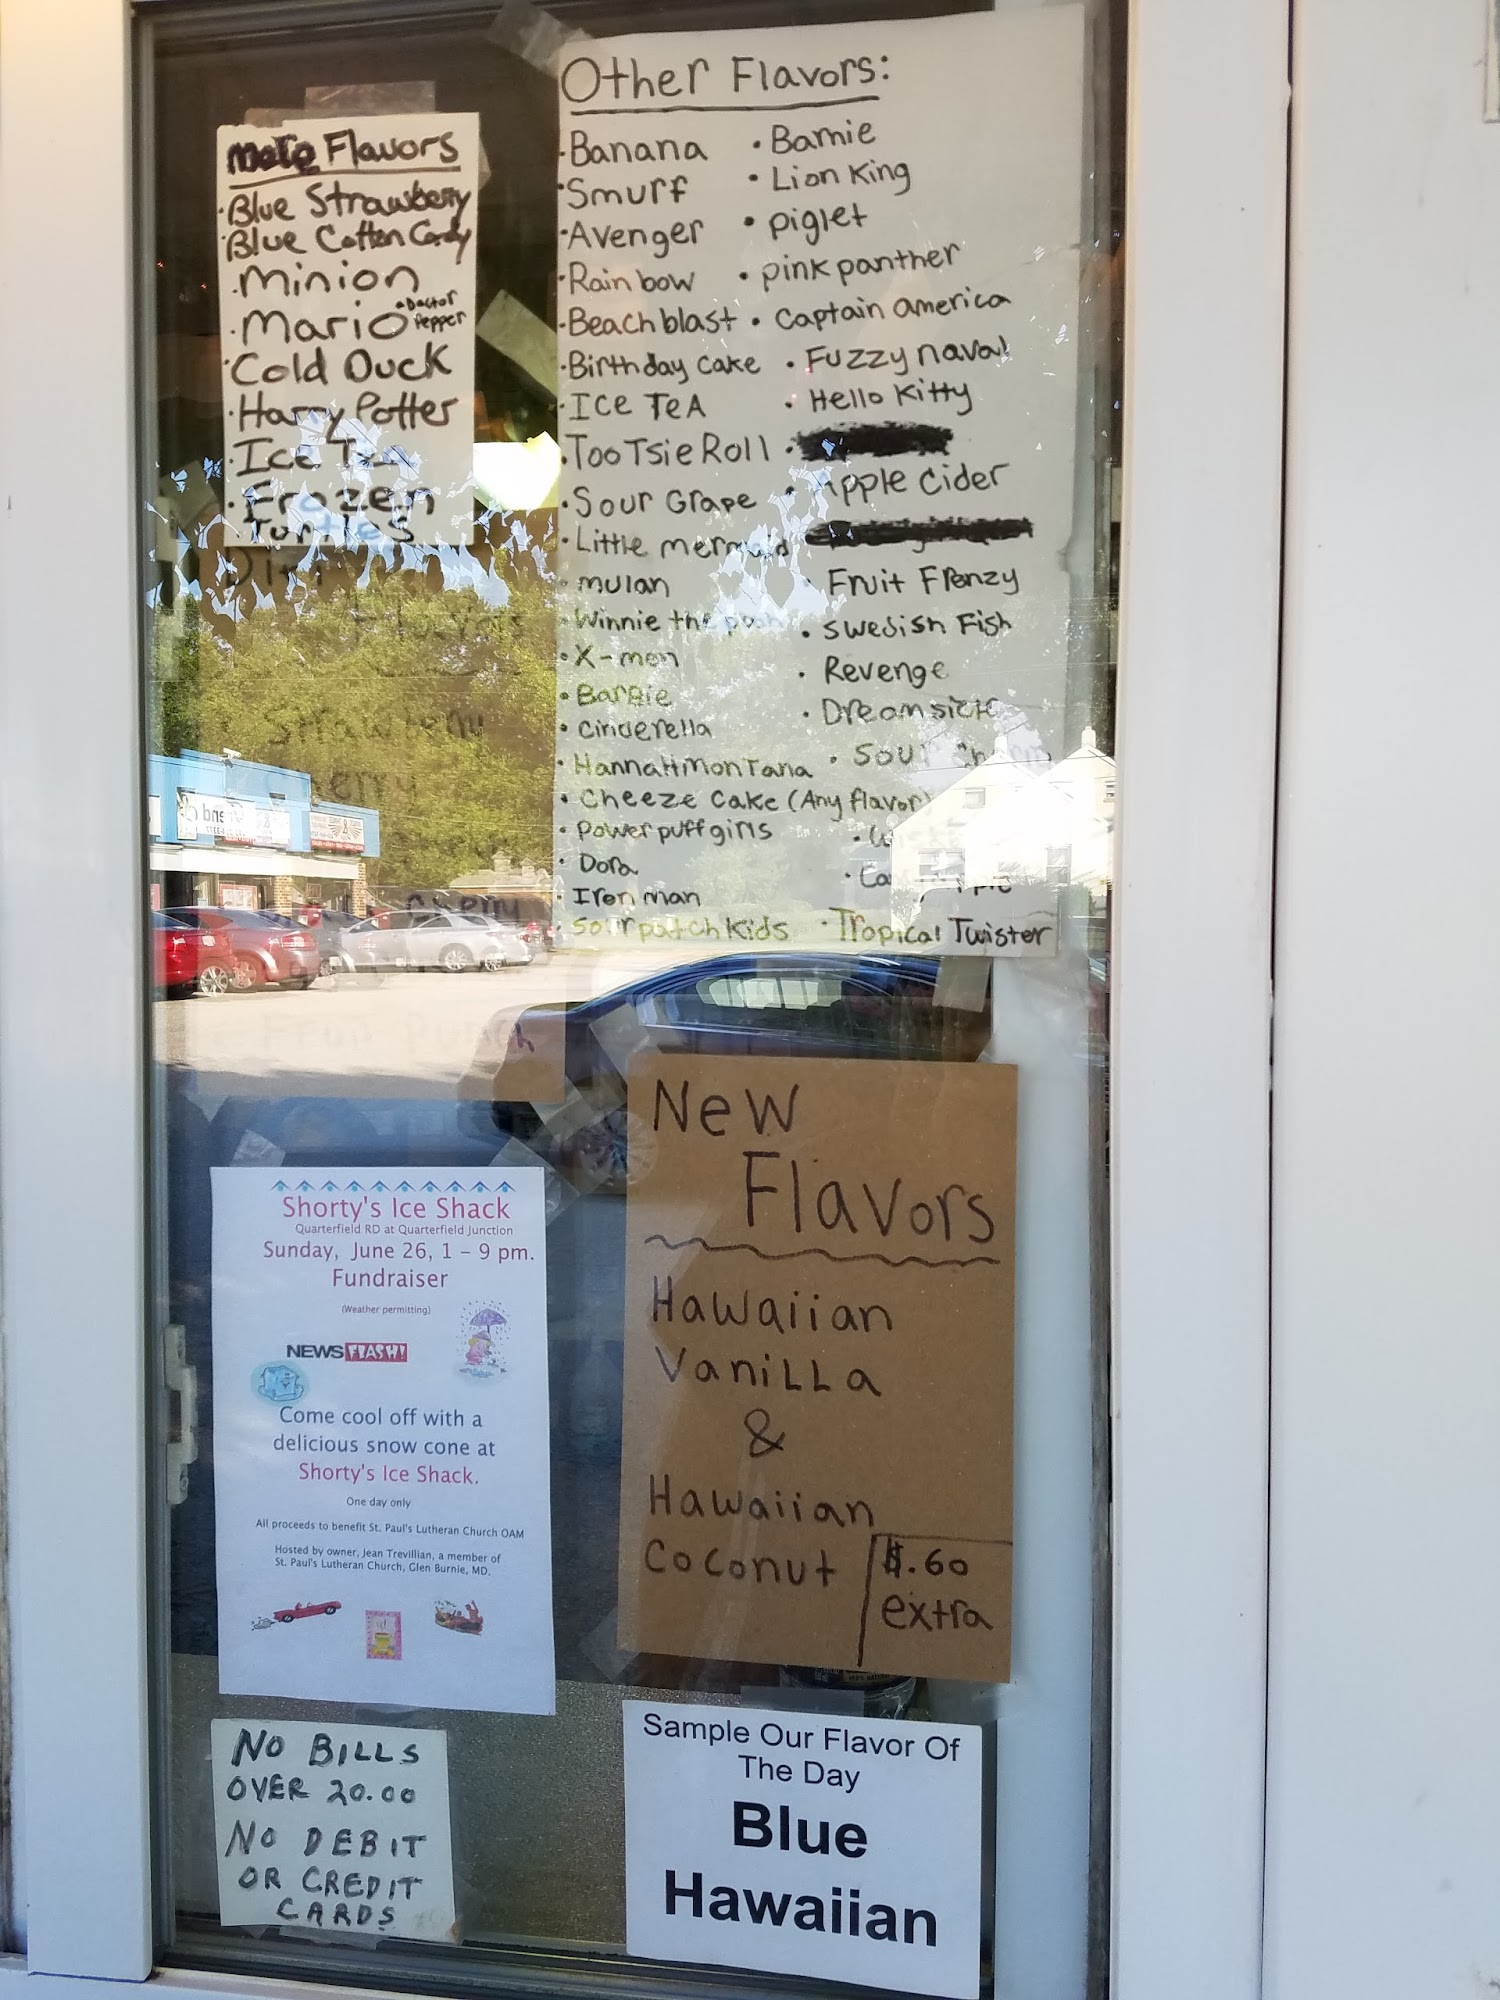 More Flavors
• Blue Strawberry
• Blue Cotten Candy
• Minion
• Mario • Doctor Pepper
• Cold Duck
• Harry Potter
• Ice Tea
• Frozen
Turtles
Other Flavors:
• Banana
• Smurf
• Avenger
• Rainbow
• Beachblast
• Birthday cake
• Ice Tea
• Tootsie Roll
• Sour Grape
• Little mermaid
• mulan
• Winnie the pooh
• X-men
• Barbie
• cinderella
• Hannah Montana
• Cheeze Cake (Any flavor)
• Powerpuff girls
• Dora
• Iron man
• Sour patch Kids
• Barnie
• Lion King
• piglet
• pink panther
• Captain america
• Fuzzy naval
• Hello Kitty
• Apple Cider
• Fruit Frenzy
• Swedish Fish
• Revenge
• Dreamsicle
• Sour
• Tropical Twister
Strawberry
Cherry
Fruit Punch
Shorty's Ice Shack
Quarterfield RD at Quarterfield Junction
Sunday, June 26, 1 – 9 pm.
Fundraiser
(Weather permitting)
NEWS FLASH!
Come cool off with a
delicious snow cone at
Shorty's Ice Shack.
One day only
All proceeds to benefit St. Paul's Lutheran Church OAM
Hosted by owner, Jean Trevillian, a member of
St. Paul's Lutheran Church, Glen Burnie, MD.
New
Flavors
Hawaiian
Vanilla
&
Hawaiian
Coconut
$.60
extra
NO BILLS
OVER 20.00
NO DEBIT
OR CREDIT
CARDS
Sample Our Flavor Of
The Day
Blue
Hawaiian